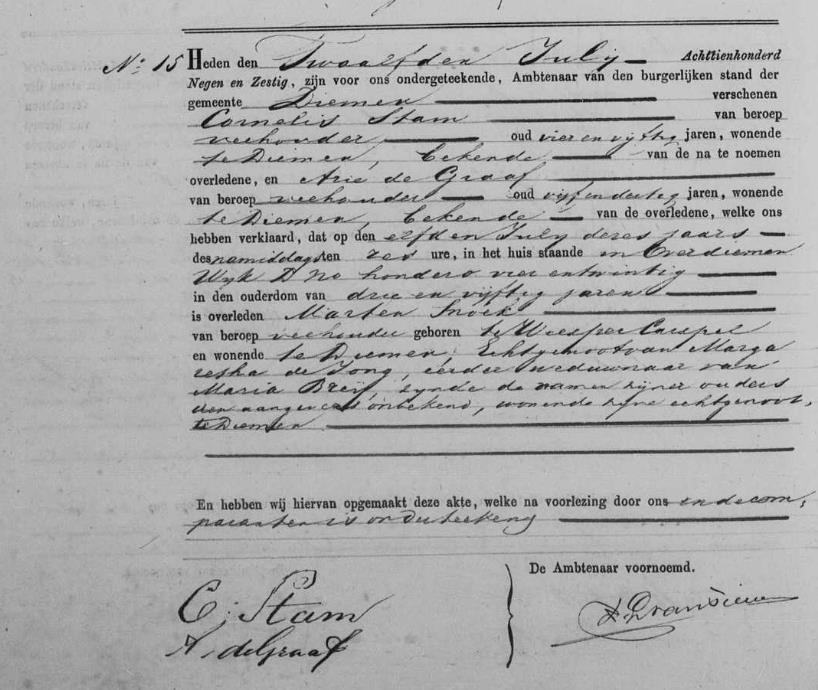 No. 15 Heden den Twaalfden July Achttienhonderd
Negen en Zestig, zijn voor ons ondergeteekende, Ambtenaar van den burgerlijken stand der
gemeente Diemen verschenen
Cornelis Stam van beroep
veehouder, oud vier en vijftig jaren, wonende
te Diemen, bekende van de na te noemen
overledene, en Arie de Graaf
van beroep veehouder oud vijf en dertig jaren, wonende
te Diemen, bekende van de overledene, welke ons
hebben verklaard, dat op den elfden July dezes jaars
des namiddags ten zes ure, in het huis staande in Overdiemen
Wyk D No honderd vier en twintig
in den ouderdom van drie en vijftig jaren
is overleden Marten Snoek
van beroep veehouder geboren te Weesper Carspel
en wonende te Diemen, Echtgenoot van Marga
retha de Jong, eerder weduwnaar van
Maria Breij, zynde de namen zyner ouders
den aangevers onbekend, wonende zyne echtgenoot,
te Diemen
En hebben wij hiervan opgemaakt deze akte, welke na voorlezing door ons en de com,
paranten is onderteekend
De Ambtenaar voornoemd.
C; Stam
A, de Graaf